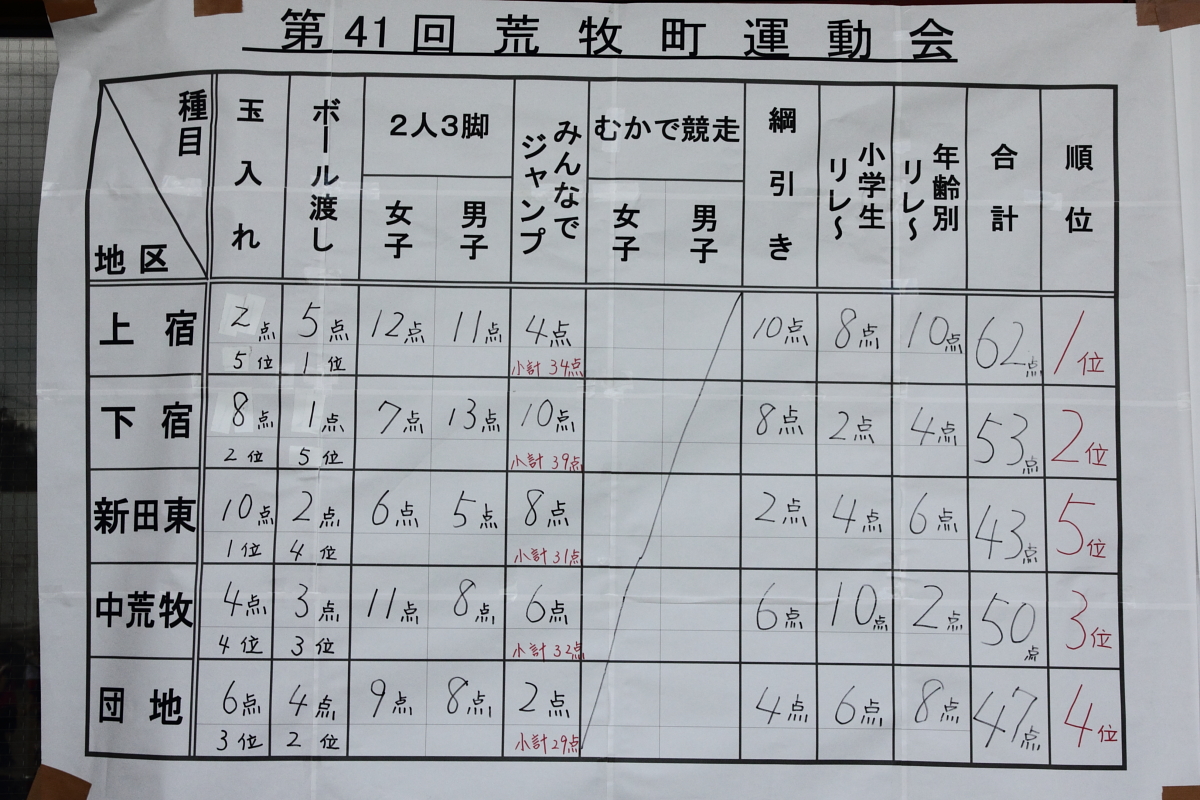 第41回荒牧町運動会
種目 地区 玉入れ ボール渡し 2人3脚 女子 男子 みんなでジャンプ むかで競走 女子 男子 綱引き 小学生リレ～ 年齢別リレ～ 合計 順位
上宿 2点 5点 12点 11点 4点 10点 8点 10点 62点 1位
5位 1位 小計34点
下宿 8点 1点 7点 13点 10点 8点 2点 4点 53点 2位
2位 5位 小計39点
新田東 10点 2点 6点 5点 8点 2点 4点 6点 43点 5位
1位 4位 小計31点
中荒牧 4点 3点 11点 8点 6点 6点 10点 2点 50点 3位
4位 3位 小計32点
団地 6点 4点 9点 8点 2点 4点 6点 8点 47点 4位
3位 2位 小計29点